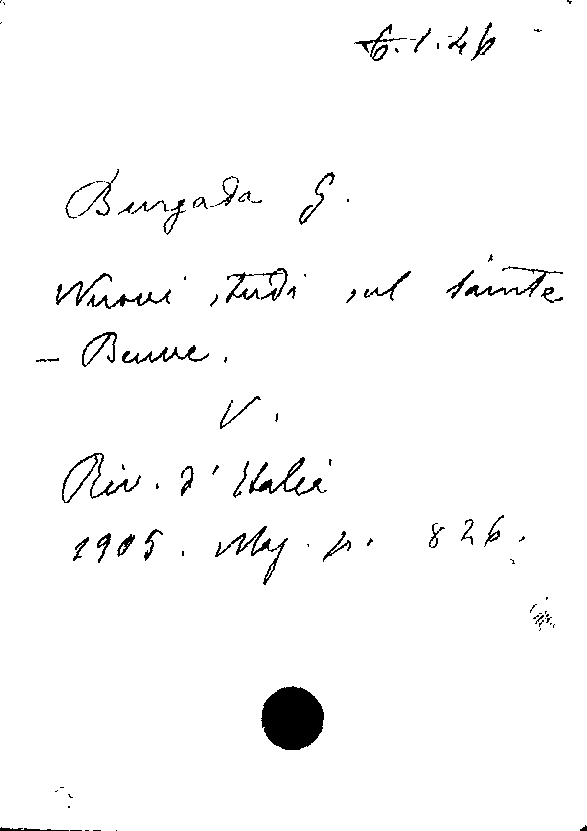 6.1.26
Burgada G.
Nuovi studi sul Sainte
- Beuve.
V.
Riv. d'Italia
1905. Mag. p. 826.